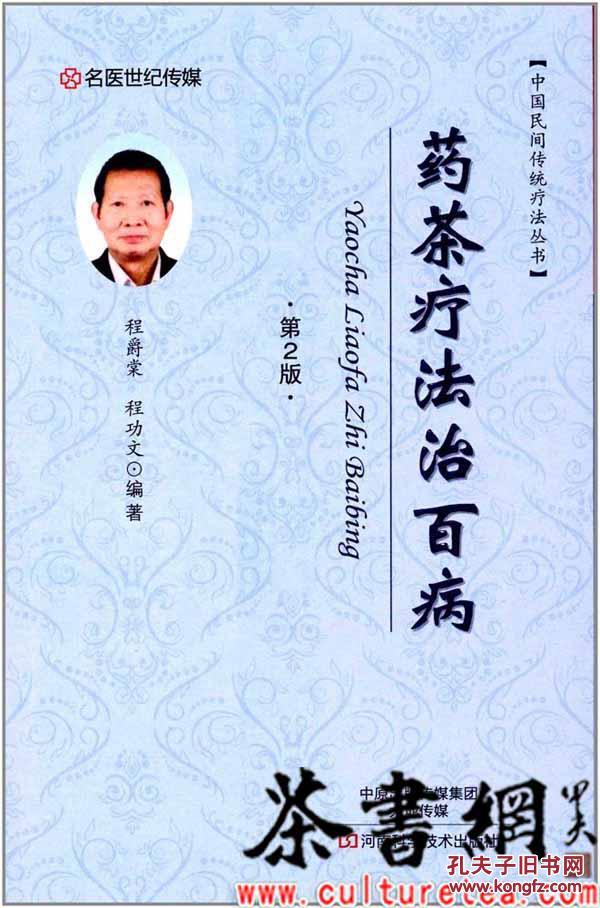 名医世纪传媒
【中国民间传统疗法丛书】
药茶疗法治百病
Yaocha Liaofa Zhi Baibing
·第2版·
程爵棠 程功文⊙编著
中原
传媒集团
传媒
河南科学技术出版社
茶書網
孔夫子旧书网
www.kongfz.com
www.culturetea.com